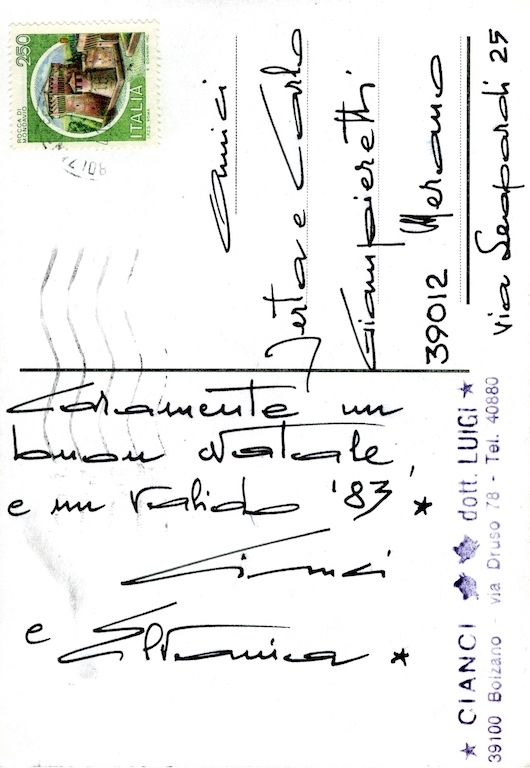 Caramente un
buon Natale,
e un valido '83 ★
Cianci
e
★
★ CIANCI ★★ dott. LUIGI ★
39100 Bolzano - via Druso 78 - Tel. 40880
250
ROCCA DI
MONDAVIO
ITALIA
Amici
Herta e Carlo
Giampieretti
39012 Merano
Via Leopardi 25